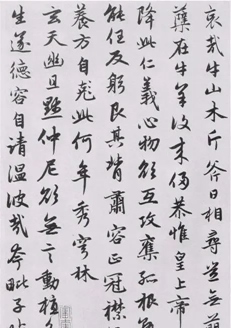 哀哉牛山木斤斧日相尋豈無萌
蘖在牛羊復来侵恭惟皇上帝
降此仁義心物欲互攻奪孤根
能任反躬艮其背肅容正冠襟
養方自此何年秀穹林
玄天幽且默仲尼欲無言動植
生遂德容自清温彼哉夸毗子